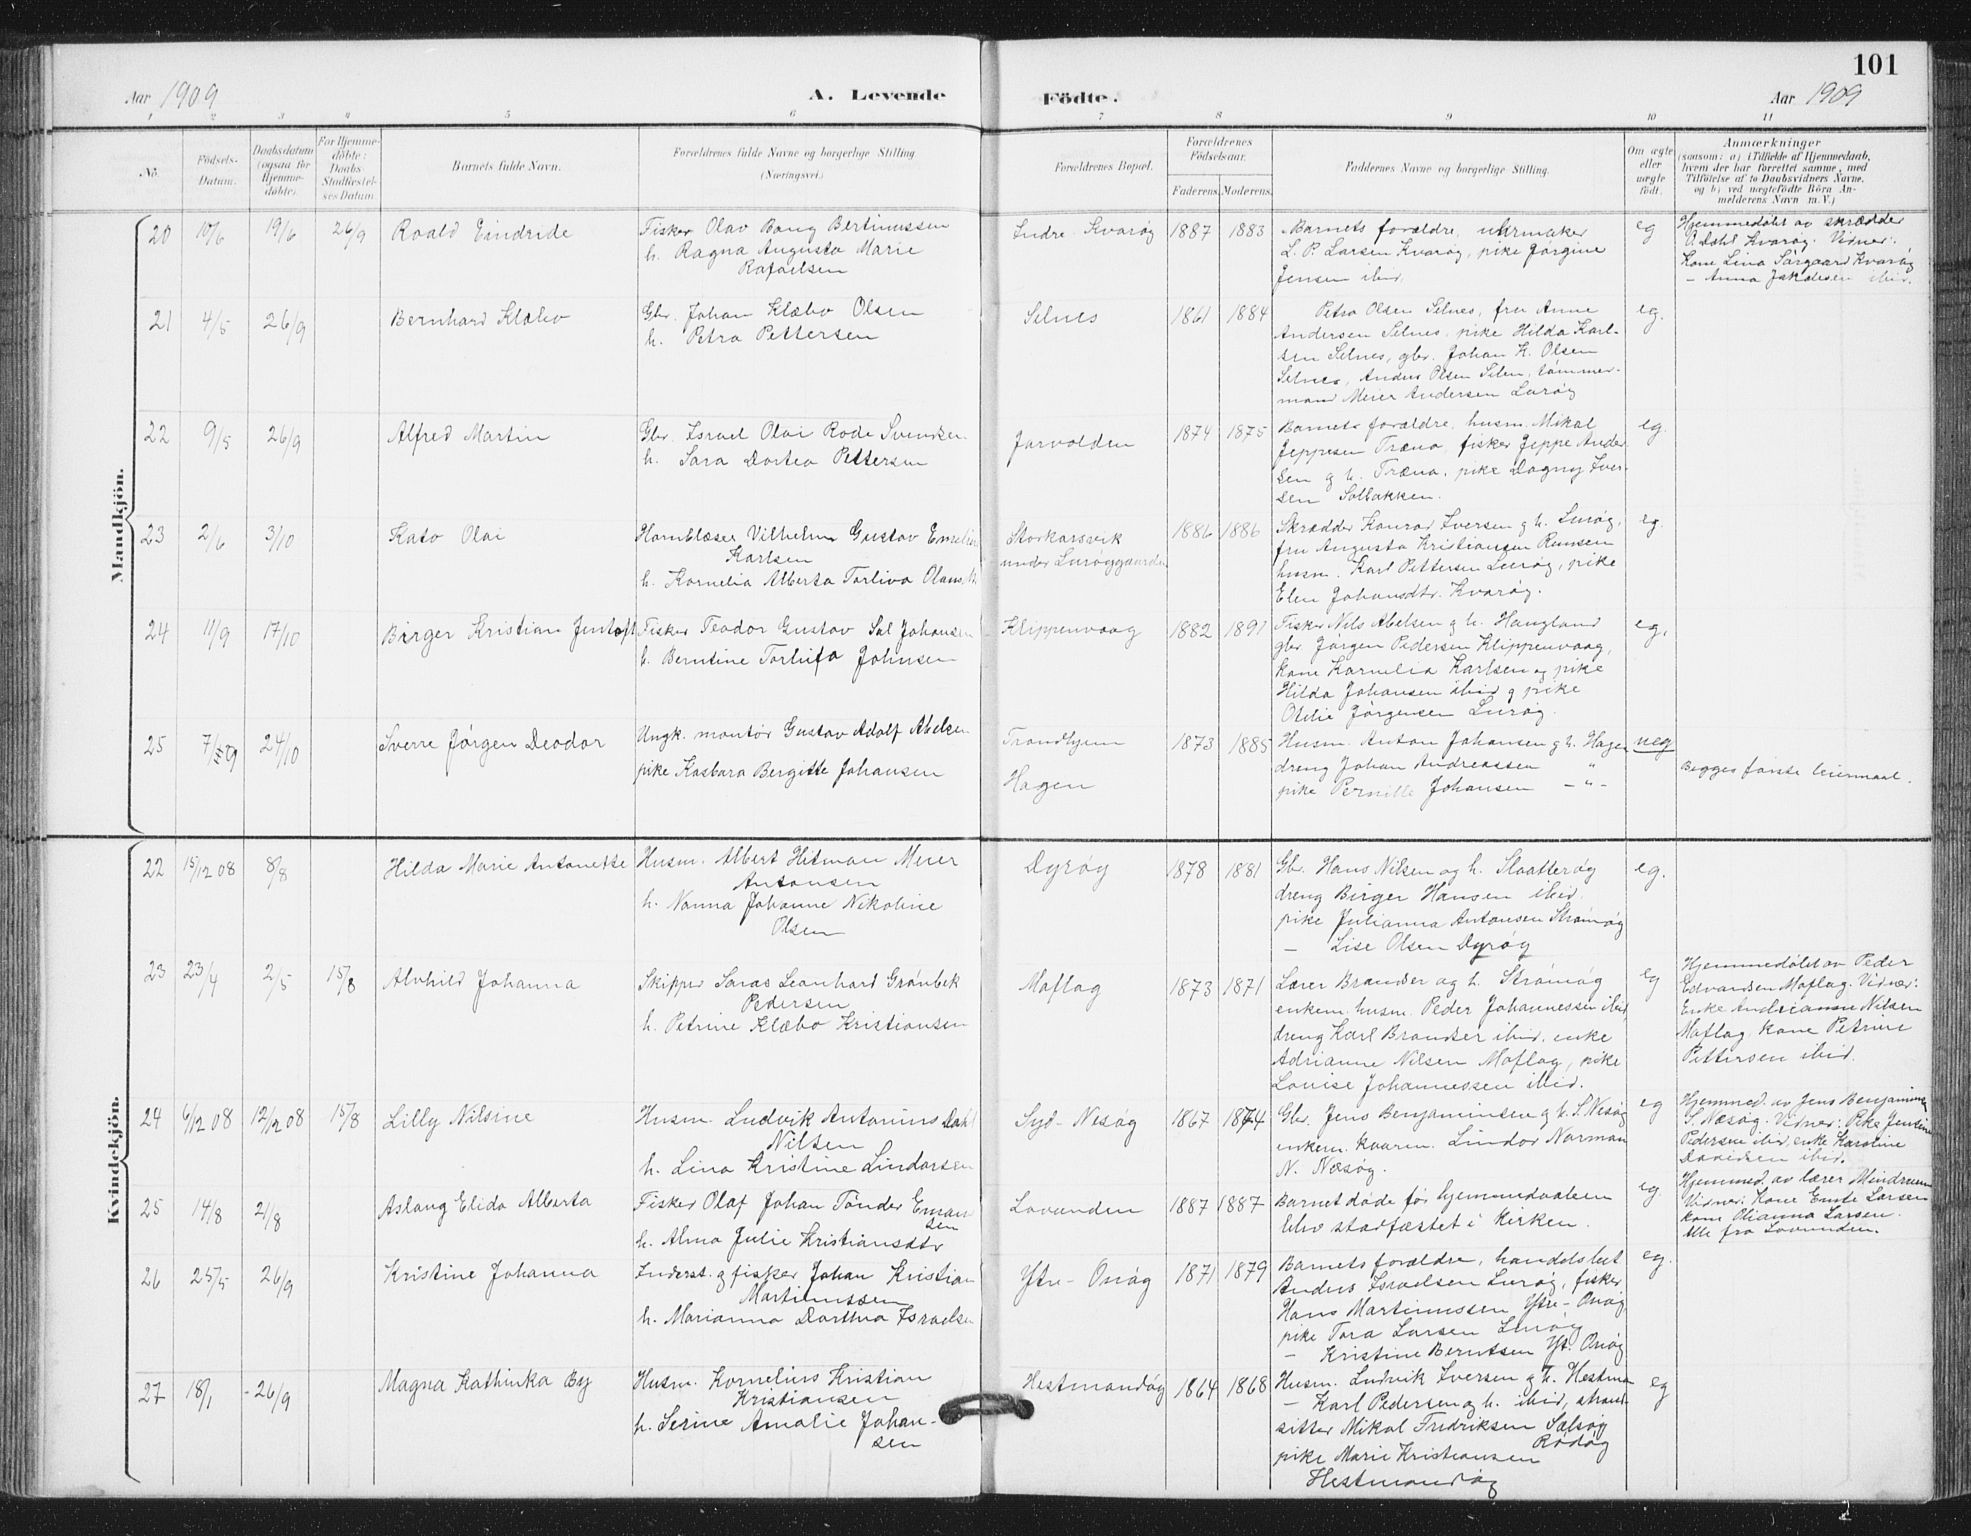 101
Aar 1909
A. Levende Födte.
Aar 1909
1 2 3 4 5 6 7 8 9 10 11
No.
Födsels-
Datum.
Daabsdatum
(ogsaa for
Hjemme-
döbte).
For Hjemme-
döbte:
Daabs-
Stadfæstel-
ses Datum.
Barnets fulde Navn.
Forældrenes fulde Navne og borgerlige Stilling
(Næringsvei.)
Forældrenes Bopæl.
Forældrenes
Födselsaar.
Faderens. Moderens.
Faddernes Navne og borgerlige Stilling.
Om ægte
eller
uægte
födt.
Anmærkninger
(saasom: a) i Tilfælde af Hjemmedaab,
hvem der har forrettet samme, med
Tilföielse af to Daabsvidners Navne,
og b) ved uægtefödte Börn An-
melderens Navn m. V.)
Mandkjön.
20 10/6 19/6 26/9 Roald Eindride
Fisker Olav Bang Bertinussen
h. Ragna Augusta Marie
Rafaelsen
Indre-Kvarøy 1887 1883
Barnets forældre, uhrmaker
L. P. Larsen Kvarøy, pike Jørgine
Jensen ibid.
eg
Hjemmedøbt av skrædder
Dahl Kvarøy. Vidner:
Kone Lina Sørgaard Kvarøy
- Anna Jakobsen ibid.
21 4/5 26/9 Bernhard Klæbo
Gbr. Johan Klæbo Olsen
h. Petra Pettersen
Selnes 1861 1884
Petra Olsen Selnes, fru Anne
Andersen Selnes, pike Hilda Karl-
sen Selnes, gbr. Johan K. Olsen
Selnes, Anders Olsen Selen, tømmer-
mand Meier Andersen Lurøy
eg.
22 9/5 26/9 Alfred Martin
Gbr. Israel Olai Rode Svendsen
h. Sara Dortea Pettersen
Jarvolden 1874 1875
Barnets forældre, husm. Mikal
Jeppesen Træna, fisker Jeppe Ander
sen g h. Træna, pike Dagny Iver-
sen Solbakken.
eg.
23 2/6 3/10 Kato Olai
Hornblæser Vilhelm Gustav Emelius
Karlsen
h. Kornelia Alberta Torliva Olaus.
Storkarsvik
under Lurøygaarden
1886 1886
Skrædder Konrad Iversen g h. Lurøy,
fru Augusta Kristiansen Rensen
husm. Karl Pettersen Lurøy, pike
Elen Johansdtr. Kvarøy.
eg.
24 11/9 17/10 Birger Kristian Jentoft
Fisker Teodor Gustav Sal Johansen
h. Berntine Torlifa Johnsen
Klippenvaag 1882 1891
Fisker Nils Abelsen g h. Haugland
gbr. Jørgen Pedersen Klippenvaag,
kone Kornelia Karlsen og pike
Hilda Johansen ibid g pike
Otilie Jørgensen Lurøy.
eg.
25 7/5 09 24/10 Sverre Jørgen Deodor
Ungk. montør Gustav Adolf Abelsen
pike Kasbara Bergitte Johansen
Trondhjem
Hagen
1873 1885
Husm. Anton Johansen g h. Hagen
dreng Johan Andreassen "
pike Pernille Johansen - " -
ueg
Begges første leiermaal.
Kvindekjön.
22 15/12 08 8/8 Hilda Marie Antonette
Husm. Albert Hitman Meier
Antonsen
h. Nanna Johanne Nikoline
Olsen
Dyrøy 1878 1881
Gbr. Hans Nilsen og h. Slaatterøy
dreng Birger Hansen ibid.
pike Julianna Antonsen Strømøy
- Lise Olsen Dyrøy
eg.
23 23/4 2/5 15/8 Alvhild Johanna
Skipper Jonas Leonhard Grønbek
Pedersen
h. Petrine Klæbo Kristiansen
Moflag 1873 1871
Lærer Brandser og h. Strømøy
enkem. husm. Peder Johannessen ibid,
dreng Karl Brandser ibid. enke
Adrianne Nilsen Moflag, pike
Louise Johannessen ibid.
eg
Hjemmedøbt av Peder
Edvardsen Moflag. Vidner:
Enke Andrianne Nilsen
Moflag kone Petrine
Pettersen ibid.
24 6/12 08 12/12 08 15/8 Lilly Nilsine
Husm. Ludvik Antonius Dahl
Nilsen
h. Lina Kristine Lindorsen
Syd-Nesøy 1867 1874
Gbr. Jens Benjaminsen g h. S. Nesøy
enkem. kvarm. Lindor Norman
N. Næsøy.
eg
Hjemmed. av Jens Benjamins
S. Næsøy. Vidner: Pike Jensine
Pedersen ibid, enke Karoline
Davidsen ibid.
25 14/8 21/8 Aslaug Elida Alberta
Fisker Olaf Johan Tønder Eman
sen
h. Alma Julie Kristiansdtr
Lovunden 1887 1887
Barnet døde før hjemmedaaben
blev stadfæstet i kirken.
eg.
Hjemmed. av lærer Mindrum
Vidner: Kone Emte Larsen
kone Olianna Larsen.
Alle fra Lovunden.
26 25/5 26/9 Kristine Johanna
Inderst. g fisker Johan Kristian
Martinussen
h. Marianna Dorthea Israelsen
Ytre-Onøy 1871 1879
Barnets forældre, handelsbest
Anders Israelsen Lurøy, fisker
Hans Martinussen Ytre-Onøy,
pike Tora Larsen Lurøy
- Kristine Berntsen Yt. Onøy
eg.
27 18/1 26/9 Magna Kathinka By
Husm. Kornelius Kristian
Kristiansen
h. Serine Amalie Johan-
sen
Hestmandøy 1864 1868
Husm. Ludvik Iversen g h. Hestma
- Karl Pedersen g h. ibid, strand-
sitter Mikal Fredriksen Sælsøy
Rødøy
pike Marie Kristiansen
Hestmandøy
eg